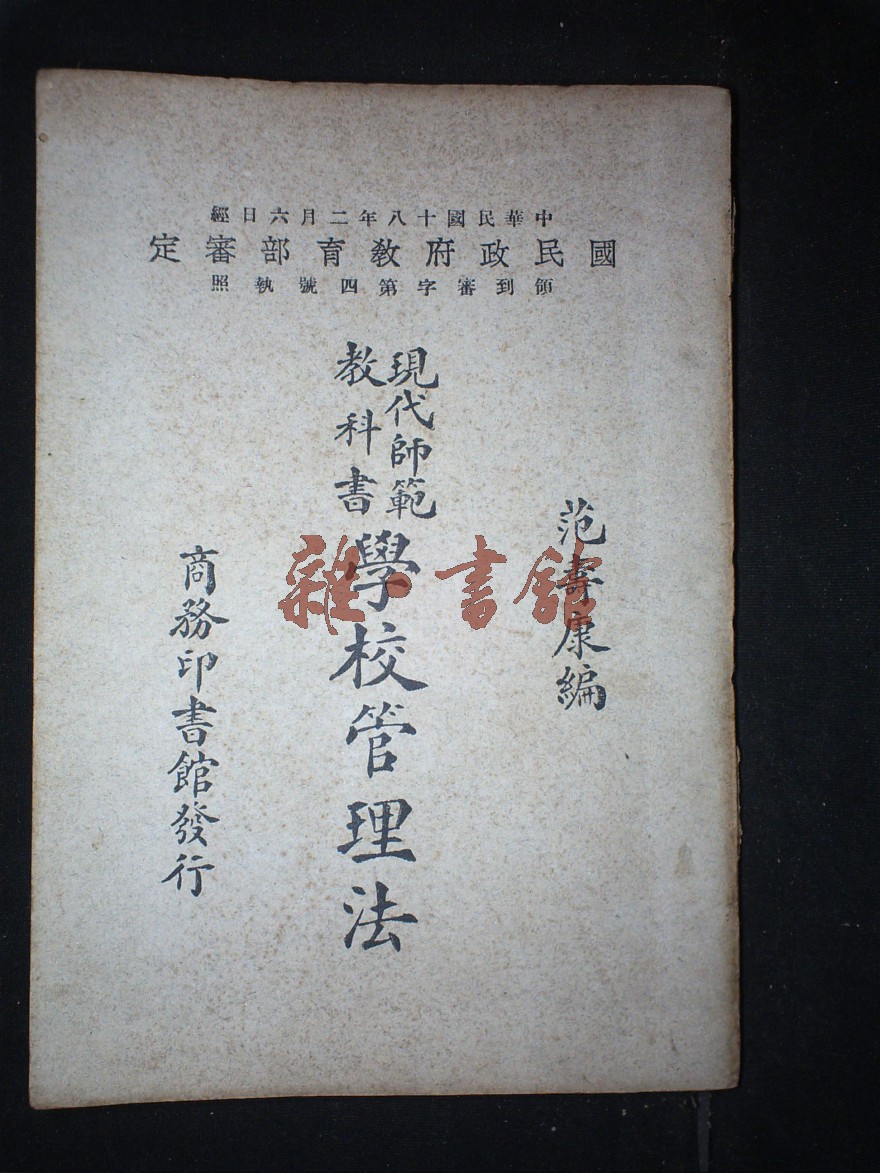 中華民國十八年二月六日經
國民政府教育部審定
領到審字第四號執照
范壽康編
現代師範
教科書
學校管理法
商務印書館發行
雜·書館